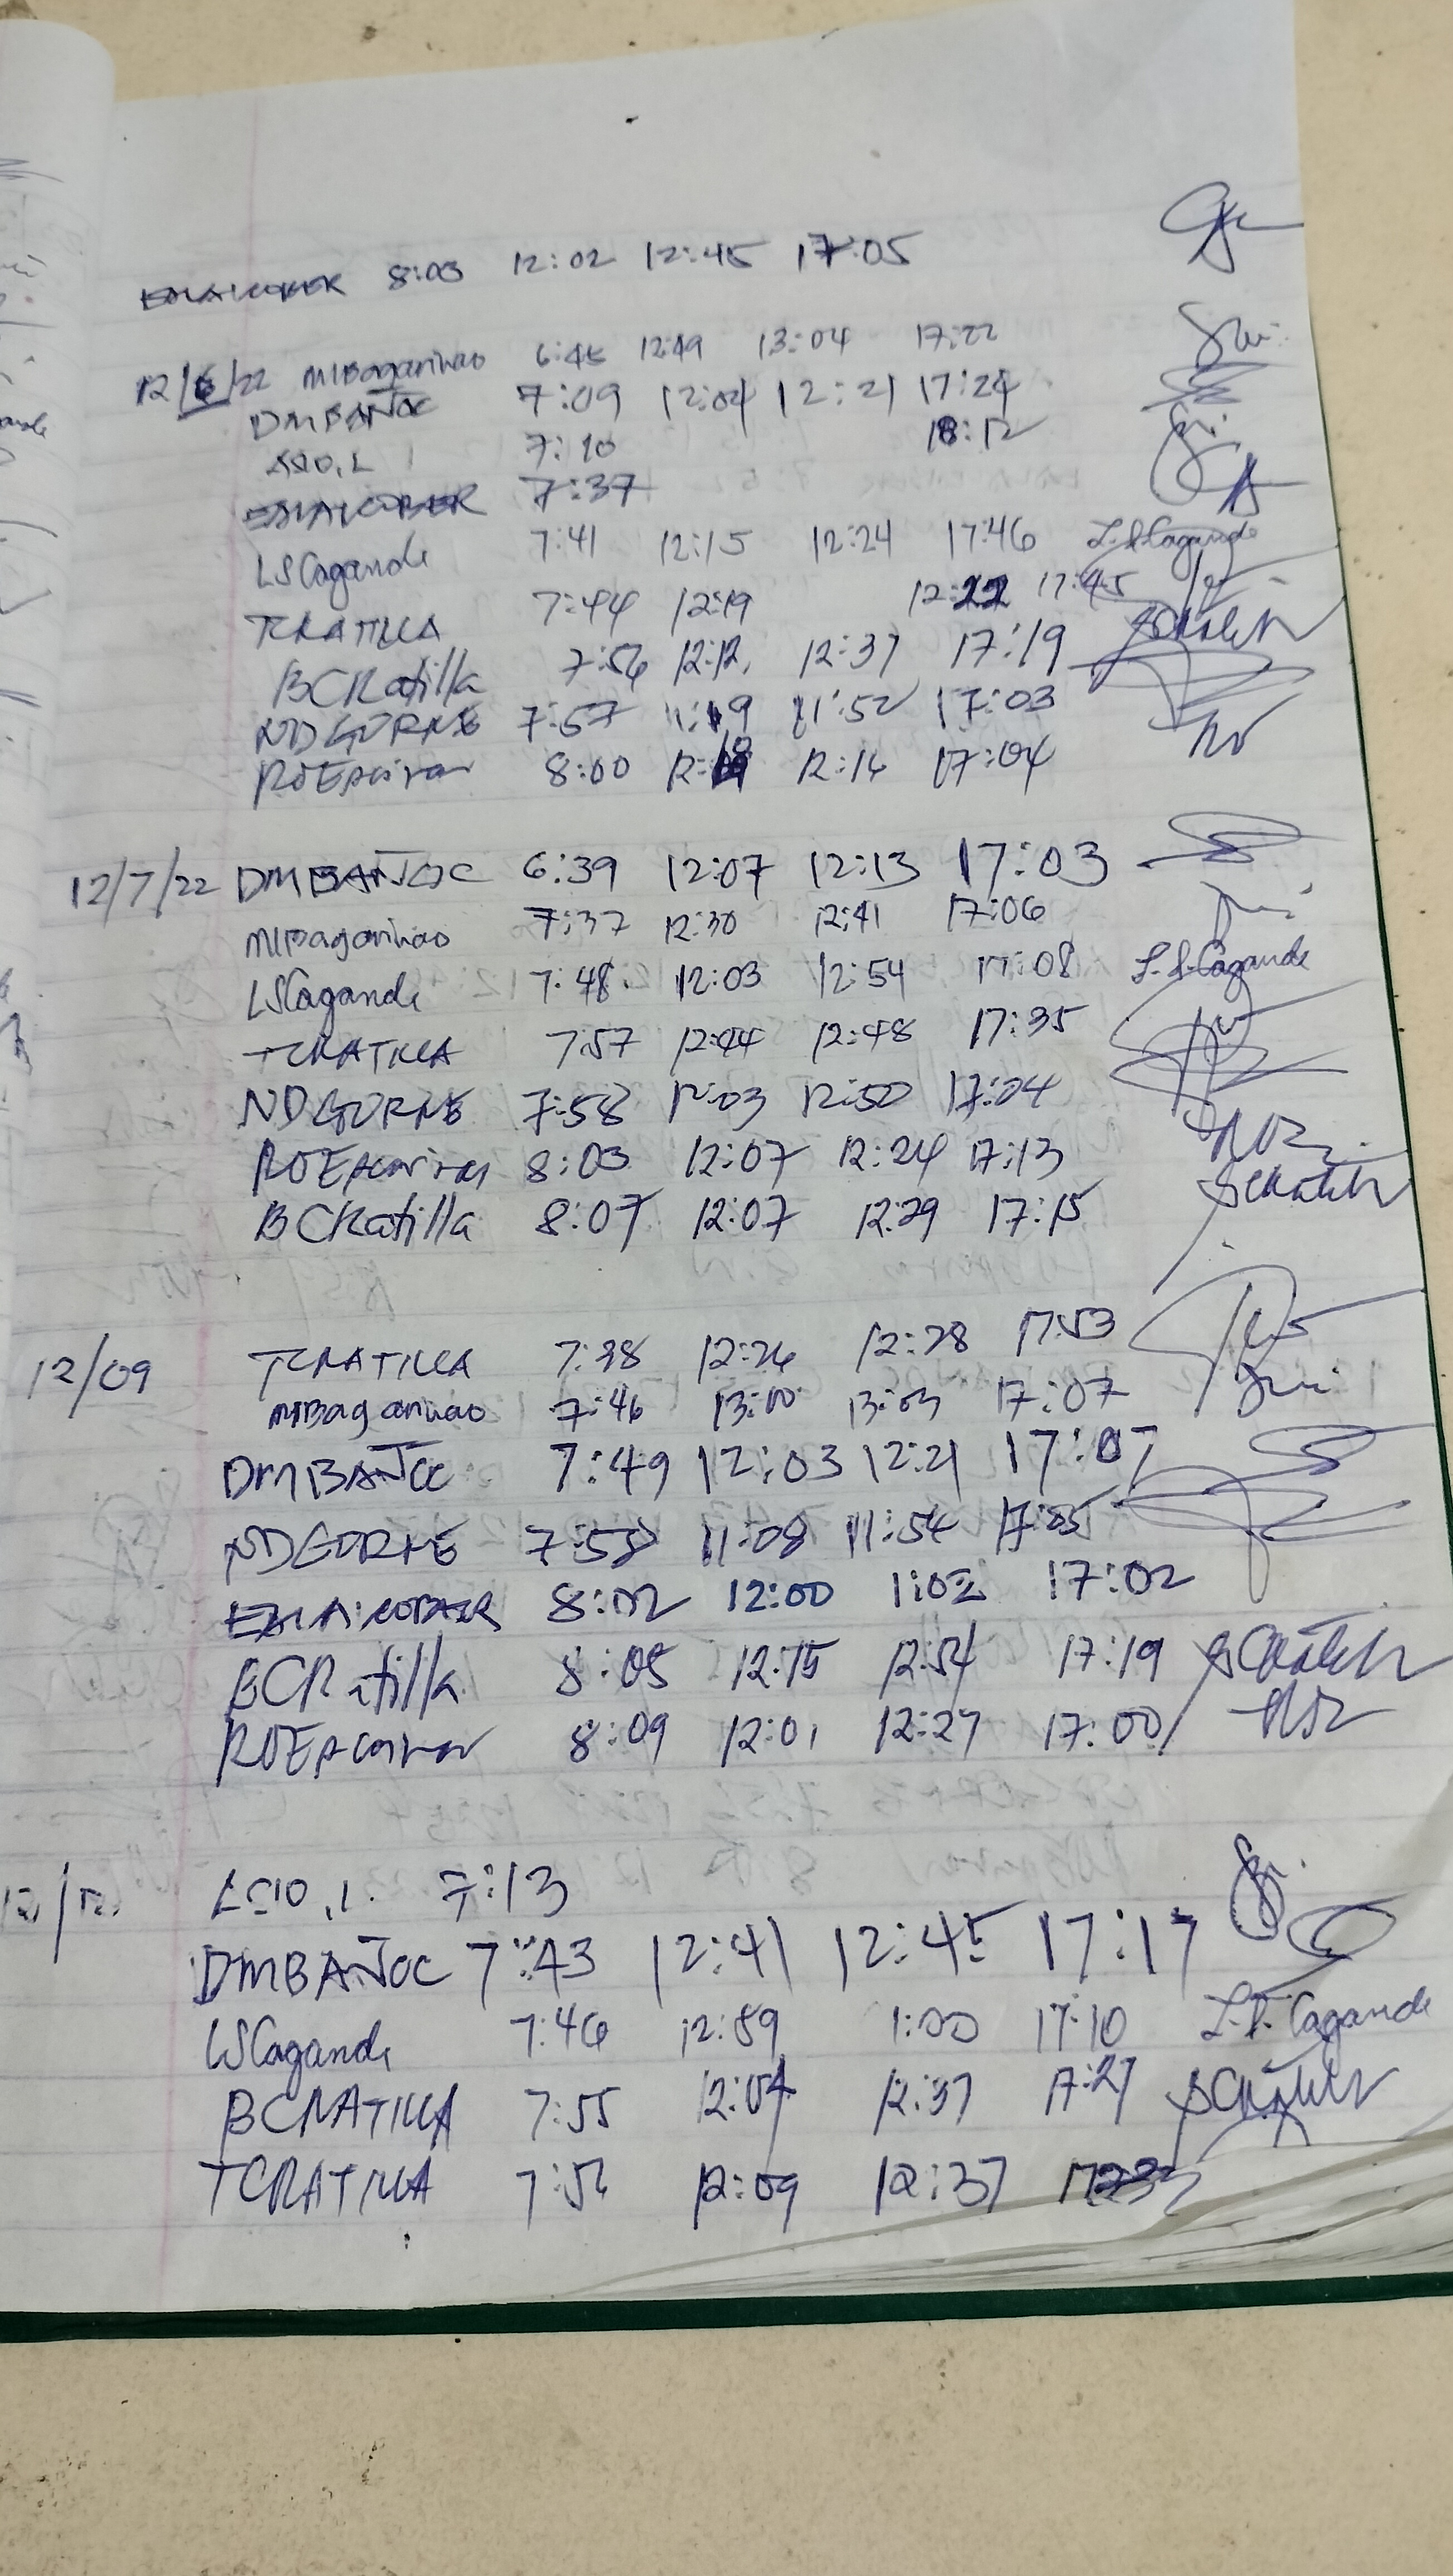 8:03 12:02 12:45 17:05
12/6/22 MIBaganihao 6:45 12:49 13:04 17:22
DMBAÑOC 7:09 12:04 12:21 17:24
7:10 18:12
7:37
LSCagande 7:41 12:15 12:24 17:46 L.S.Cagande
TCRATILLA 7:44 12:19 12:22 17:45
BCRatilla 7:56 12:12 12:37 17:19
NDGORNE 7:57 11:52 17:03
8:00 12:16 17:04
12/7/22 DMBAÑOC 6:39 12:07 12:13 17:03
MIBaganihao 7:37 12:30 12:41 17:06
LSCagande 7:48 12:03 12:54 17:08 L.S.Cagande
TCRATILLA 7:57 12:44 12:48 17:35
NDGORNE 7:58 12:03 12:50 17:04
8:03 12:07 12:24 17:13
BCRatilla 8:07 12:07 12:29 17:15
12/09 TCRATILLA 7:38 12:26 12:28 17:53
MIBaganihao 7:46 13:00 13:03 17:07
DMBAÑOC 7:49 12:03 12:21 17:07
NDGORNE 7:58 11:08 11:54 17:05
8:02 12:00 1:02 17:02
BCRatilla 8:05 12:15 12:54 17:19
8:09 12:01 12:27 17:00
12/12 7:13
DMBAÑOC 7:43 12:41 12:45 17:17
LSCagande 7:46 12:59 1:00 17:10 L.S.Cagande
BCRATILLA 7:55 12:04 12:37 17:27
TCRATILLA 7:56 12:09 12:37